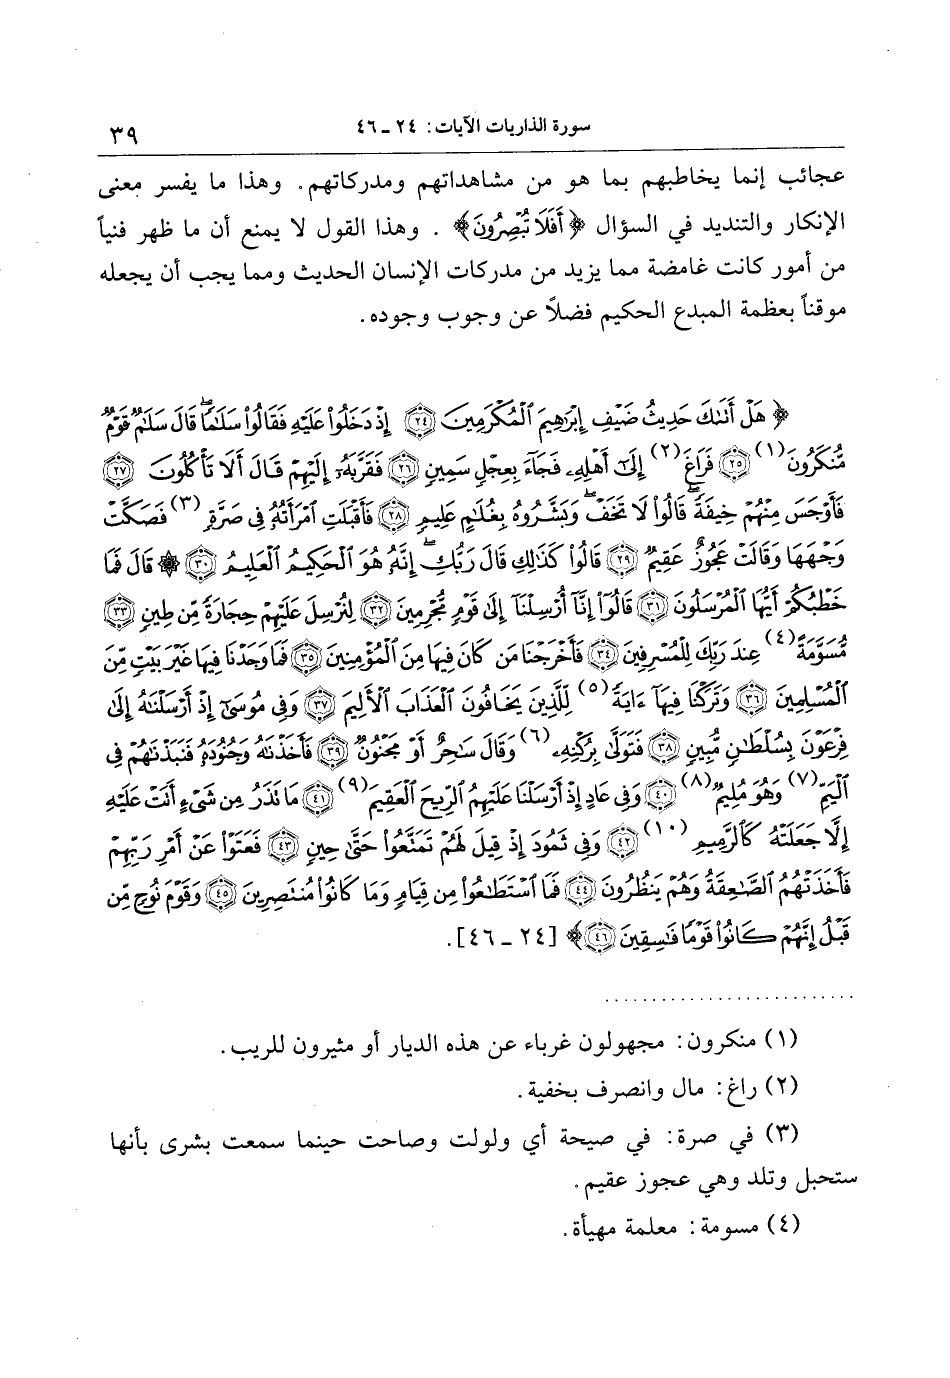 سورة الذاريات الآيات: ٢٤ ـ ٤٦ ٣٩
عجائب إنما يخاطبهم بما هو من مشاهداتهم ومدركاتهم. وهذا ما يفسر معنى
الإنكار والتنديد في السؤال ﴿أَفَلَا تُبْصِرُونَ﴾ . وهذا القول لا يمنع أن ما ظهر فنياً
من أمور كانت غامضة مما يزيد من مدركات الإنسان الحديث ومما يجب أن يجعله
موقناً بعظمة المبدع الحكيم فضلاً عن وجوب وجوده.
﴿ هَلْ أَتَىٰكَ حَدِيثُ ضَيْفِ إِبْرَٰهِيمَ ٱلْمُكْرَمِينَ ٢٤ إِذْ دَخَلُوا۟ عَلَيْهِ فَقَالُوا۟ سَلَٰمًا ۖ قَالَ سَلَٰمٌ قَوْمٌ
مُّنكَرُونَ (١) ٢٥ فَرَاغَ (٢) إِلَىٰٓ أَهْلِهِۦ فَجَآءَ بِعِجْلٍ سَمِينٍ ٢٦ فَقَرَّبَهُۥٓ إِلَيْهِمْ قَالَ أَلَا تَأْكُلُونَ ٢٧
فَأَوْجَسَ مِنْهُمْ خِيفَةً ۖ قَالُوا۟ لَا تَخَفْ ۖ وَبَشَّرُوهُ بِغُلَٰمٍ عَلِيمٍ ٢٨ فَأَقْبَلَتِ ٱمْرَأَتُهُۥ فِى صَرَّةٍ (٣) فَصَكَّتْ
وَجْهَهَا وَقَالَتْ عَجُوزٌ عَقِيمٌ ٢٩ قَالُوا۟ كَذَٰلِكِ قَالَ رَبُّكِ ۖ إِنَّهُۥ هُوَ ٱلْحَكِيمُ ٱلْعَلِيمُ ٣٠ ۞ قَالَ فَمَا
خَطْبُكُمْ أَيُّهَا ٱلْمُرْسَلُونَ ٣١ قَالُوٓا۟ إِنَّآ أُرْسِلْنَآ إِلَىٰ قَوْمٍ مُّجْرِمِينَ ٣٢ لِنُرْسِلَ عَلَيْهِمْ حِجَارَةً مِّن طِينٍ ٣٣
مُّسَوَّمَةً (٤) عِندَ رَبِّكَ لِلْمُسْرِفِينَ ٣٤ فَأَخْرَجْنَا مَن كَانَ فِيهَا مِنَ ٱلْمُؤْمِنِينَ ٣٥ فَمَا وَجَدْنَا فِيهَا غَيْرَ بَيْتٍ مِّنَ
ٱلْمُسْلِمِينَ ٣٦ وَتَرَكْنَا فِيهَآ ءَايَةً (٥) لِّلَّذِينَ يَخَافُونَ ٱلْعَذَابَ ٱلْأَلِيمَ ٣٧ وَفِى مُوسَىٰٓ إِذْ أَرْسَلْنَٰهُ إِلَىٰ
فِرْعَوْنَ بِسُلْطَٰنٍ مُّبِينٍ ٣٨ فَتَوَلَّىٰ بِرُكْنِهِۦ (٦) وَقَالَ سَٰحِرٌ أَوْ مَجْنُونٌ ٣٩ فَأَخَذْنَٰهُ وَجُنُودَهُۥ فَنَبَذْنَٰهُمْ فِى
ٱلْيَمِّ (٧) وَهُوَ مُلِيمٌ (٨) ٤٠ وَفِى عَادٍ إِذْ أَرْسَلْنَا عَلَيْهِمُ ٱلرِّيحَ ٱلْعَقِيمَ (٩) ٤١ مَا تَذَرُ مِن شَىْءٍ أَتَتْ عَلَيْهِ
إِلَّا جَعَلَتْهُ كَٱلرَّمِيمِ (١٠) ٤٢ وَفِى ثَمُودَ إِذْ قِيلَ لَهُمْ تَمَتَّعُوا۟ حَتَّىٰ حِينٍ ٤٣ فَعَتَوْا۟ عَنْ أَمْرِ رَبِّهِمْ
فَأَخَذَتْهُمُ ٱلصَّٰعِقَةُ وَهُمْ يَنظُرُونَ ٤٤ فَمَا ٱسْتَطَٰعُوا۟ مِن قِيَامٍ وَمَا كَانُوا۟ مُنتَصِرِينَ ٤٥ وَقَوْمَ نُوحٍ مِّن
قَبْلُ إِنَّهُمْ كَانُوا۟ قَوْمًا فَٰسِقِينَ ٤٦﴾ [٢٤ ـ ٤٦].
(١) منكرون: مجهولون غرباء عن هذه الديار أو مثيرون للريب.
(٢) راغ: مال وانصرف بخفية.
(٣) في صرة: في صيحة أي ولولت وصاحت حينما سمعت بشرى بأنها
ستحبل وتلد وهي عجوز عقيم.
(٤) مسومة: معلمة مهيأة.